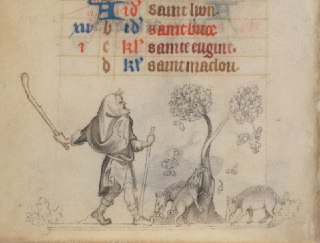 A id' saint lion
xiii b id' saint brice
i c kl' sainte eugine
d kl' saint maclou